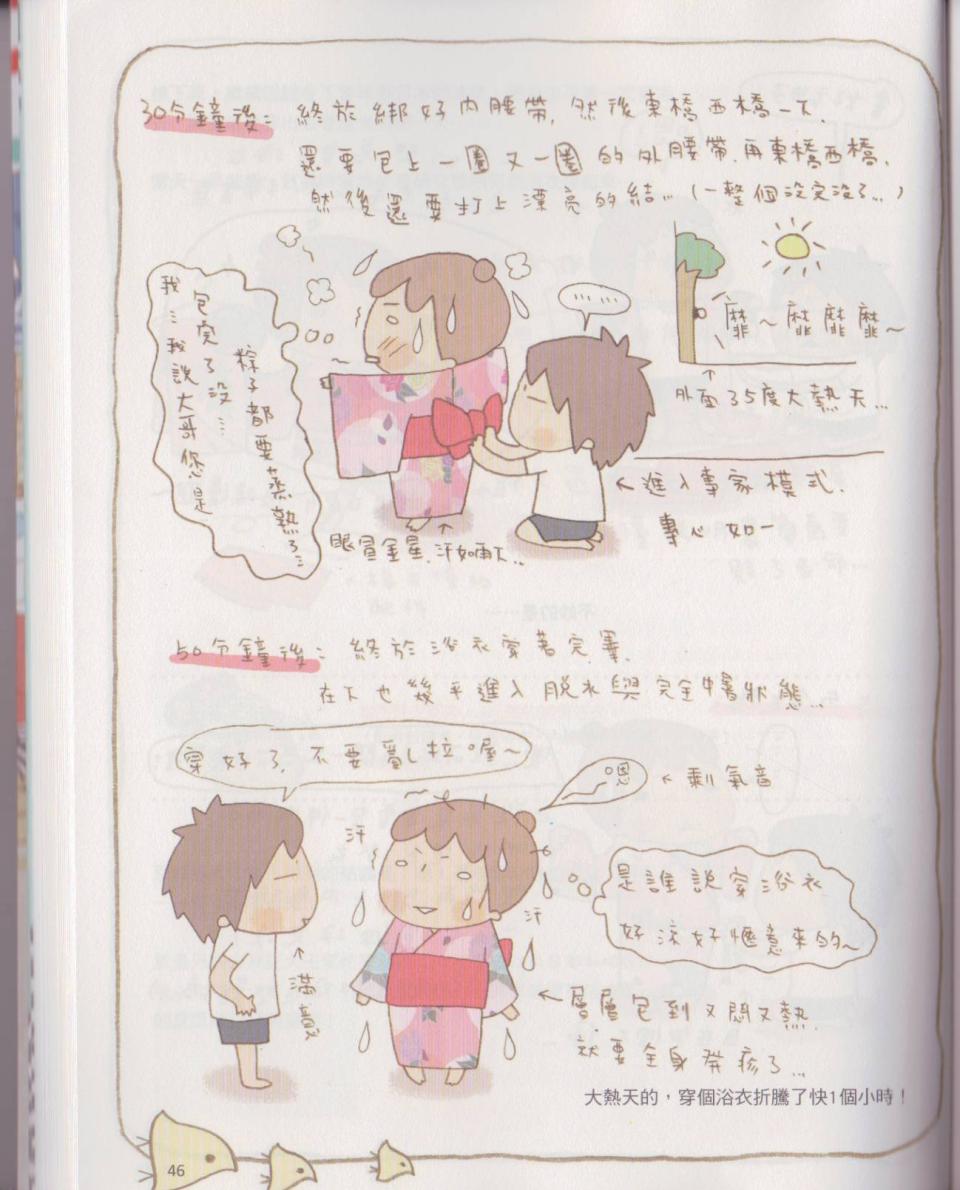 30分鐘後：終於綁好內腰帶，然後東橋西橋一下，
還要包上一圈又一圈的外腰帶，再東橋西橋，
然後還要打上漂亮的結…（一整個沒完沒了…）
我…我說大哥您是
包完了沒…
粽子都要蒸熟了…
……
靡～靡靡靡～
外面35度大熱天…
←進入專家模式，
專心如一
眼冒金星，汗如雨下…
50分鐘後：終於浴衣穿著完畢，
在下也幾乎進入脫水與完全中暑狀態…
穿好了，不要亂拉喔～
嗯
←剩氣音
汗
汗
滿意
是誰說穿浴衣
好涼好愜意來的～
←層層包到又悶又熱，
就要全身發疹了…
大熱天的，穿個浴衣折騰了快1個小時！
46